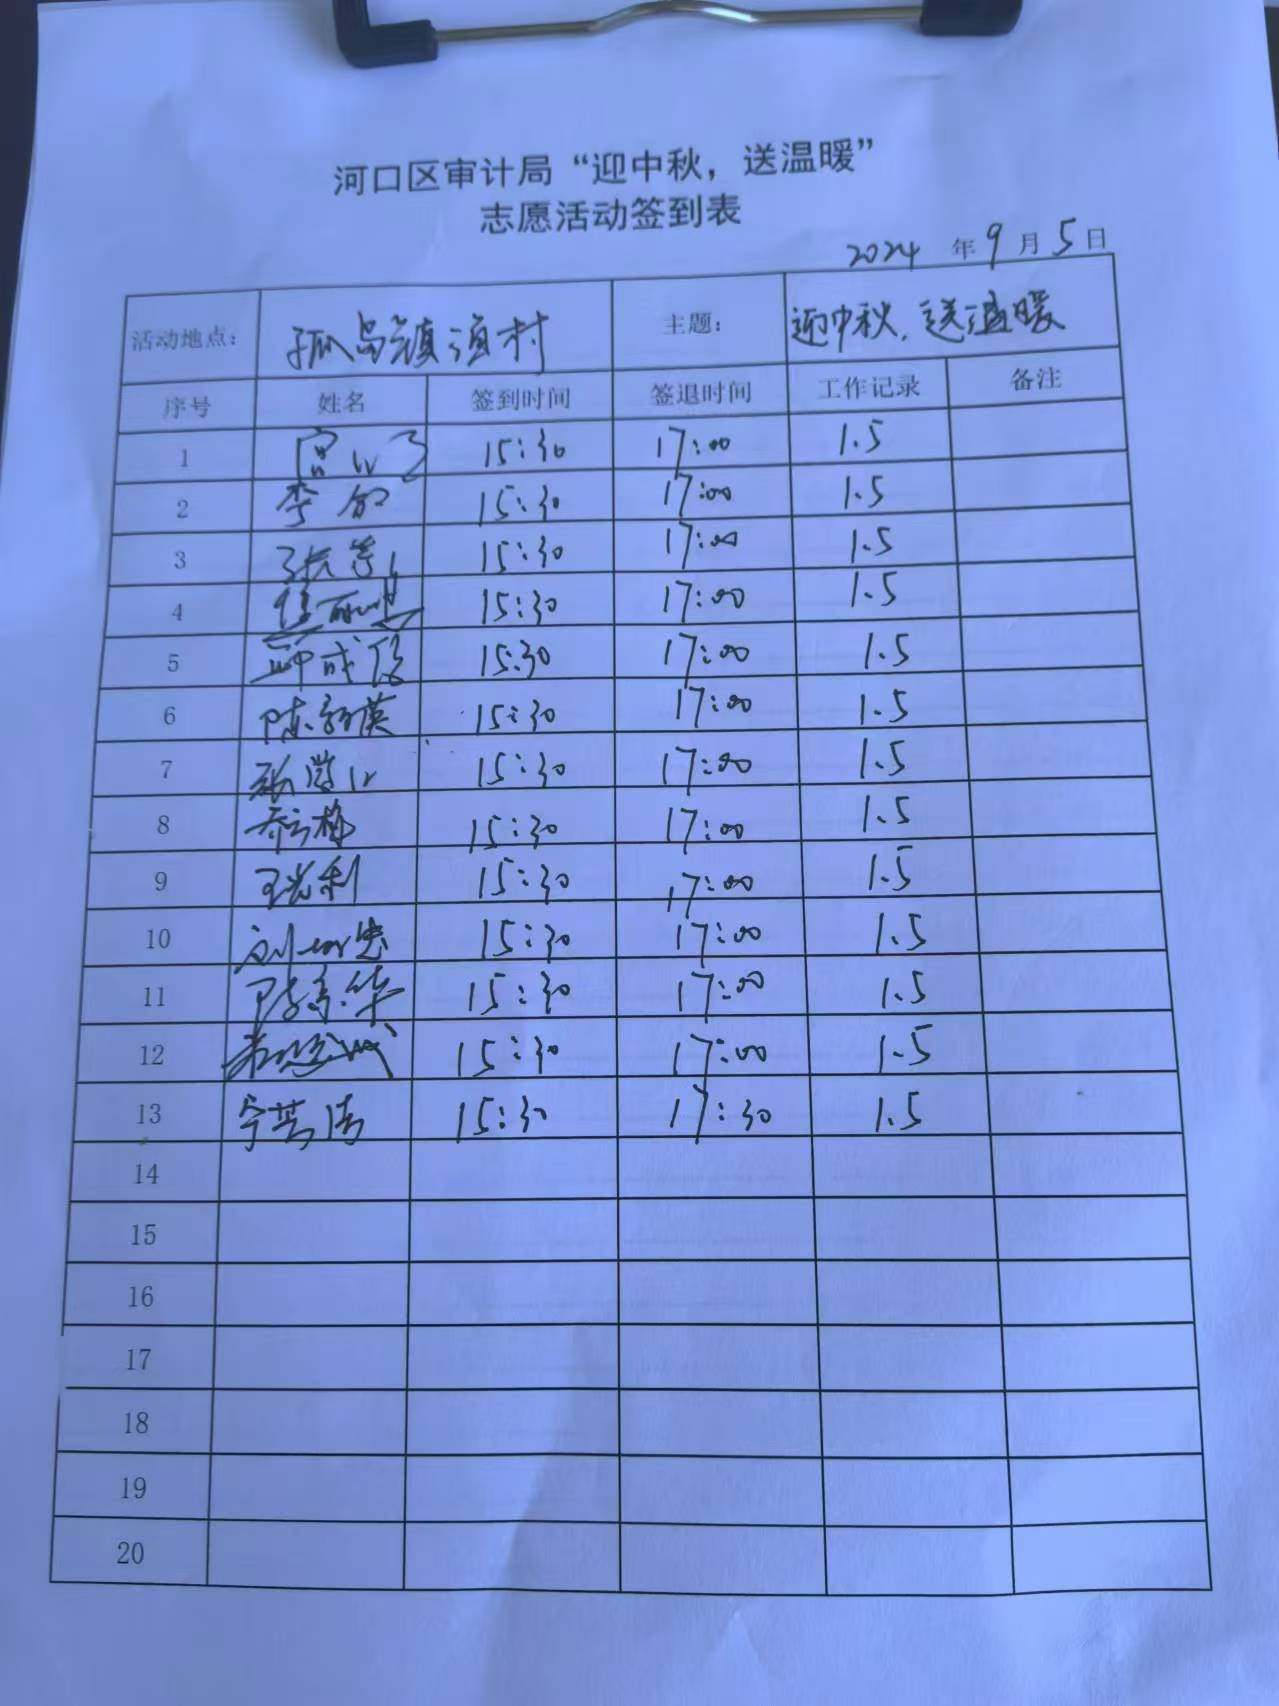 河口区审计局“迎中秋，送温暖”
志愿活动签到表
2024 年 9 月 5 日
活动地点： 孤岛镇渔村 主题： 迎中秋，送温暖
序号 姓名 签到时间 签退时间 工作记录 备注
1 15:30 17:00 1.5
2 15:30 17:00 1.5
3 15:30 17:00 1.5
4 15:30 17:00 1.5
5 15:30 17:00 1.5
6 15:30 17:00 1.5
7 15:30 17:00 1.5
8 15:30 17:00 1.5
9 15:30 17:00 1.5
10 15:30 17:00 1.5
11 15:30 17:00 1.5
12 15:30 17:00 1.5
13 15:30 17:30 1.5
14
15
16
17
18
19
20